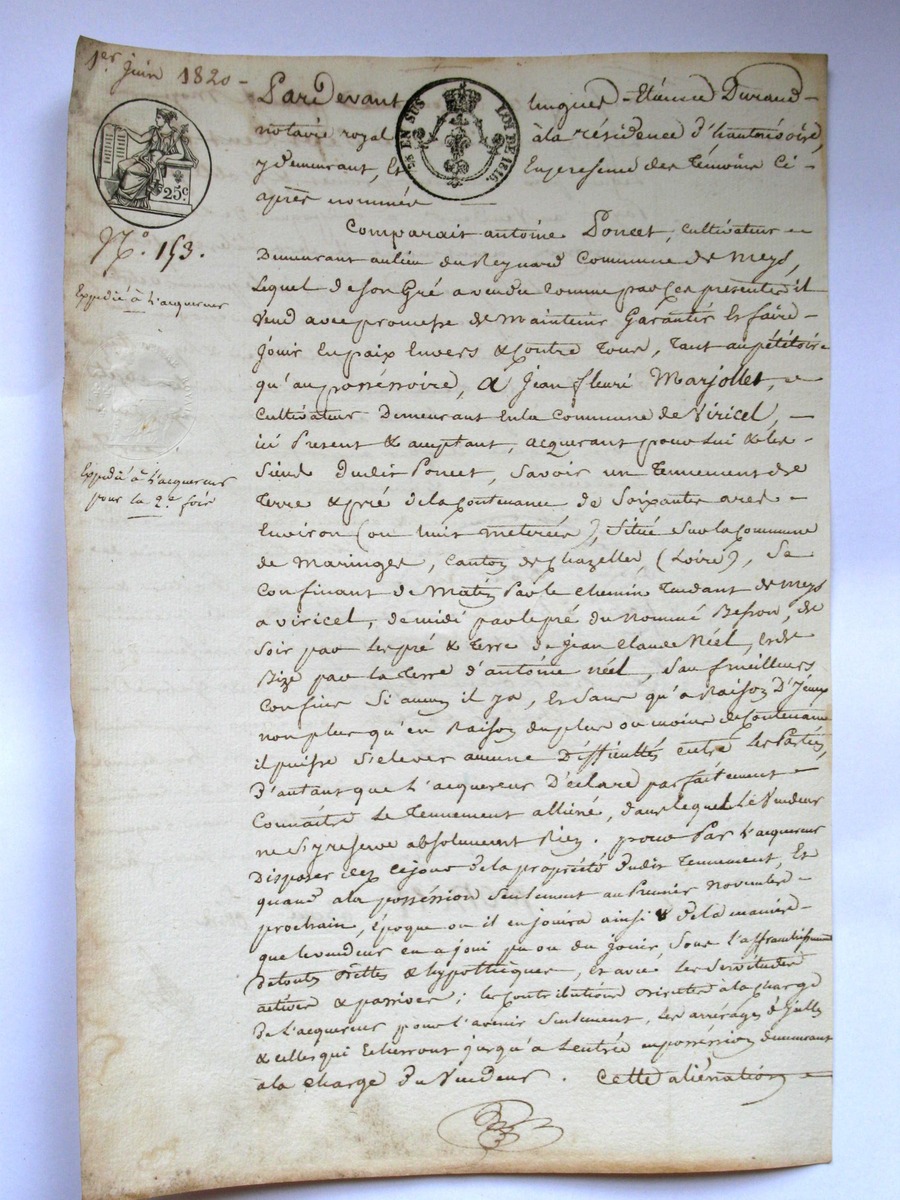 1er Juin 1820 -
Pardevant hugues - Etienne Durand -
notaire royal à la résidence d'hauterivoire,
y demeurant, Et En presence des témoins Ci-
après nommés
25 EN SUS LOI DE 1816.
25c
N.o 153.
Expédié à L'acquereur
Expedié à L'acquereur
pour la 2.e fois
Comparait antoine Poncet, cultivateur
Demeurant au lieu du Reynard Commune de meys,
Lequel de son Gré a vendu comme par ces presentes il
vend avec promesse de maintenir Garantir Et faire
Jouir En paix Envers & Contre tous, tant au pétitoire
qu'au possessoire, a Jean fleuri Marjollet,
Cultivateur Demeurant En la Commune de Viricel, -
ici Present & acceptant, acquerant pour Lui & les -
Siens dudit Poncet, Savoir un Tennement de
Terre & pré de la Contenance de Soixante ares -
Environ (ou huit meterées), Situé Sur la Commune
de Maringes, Canton de Chazelles, (Loire), Se
Confinant de Matin Par le chemin Tendant de Meys
a viricel, de midi par le pré du Nommé Besson, de
Soir par les pré & terre de Jean Claude Néel, et de
Bize par la terre d'antoine néel, Sauf meilleurs
Confins Si aucun il y a, Et Sans qu'a Raison D'Iceux
non plus qu'en Raison du plus ou moins de Contenance
il puisse S'elever aucune Difficultés entre les Parties,
D'autant que L'acquereur Déclare parfaitement
Connaître Le Tennement alliéné, dans lequel Le Vendeur
ne S'y reserve absolument Rien. pour Par L'acquereur
Disposer dez ce jour de la propriété dudit Tennement, Et
quand a la possession Seulement au Premier novembre -
prochain, Epoque ou il en jouira ainsi & de la maniere -
que le vendeur en a joui pu ou du jouir, Sous l'affranchissement
de touts dettes & hypotheques, Et avec les Servitudes
actives & passives; les Contributions directes à la Charge
de L'acquereur pour l'avenir Seulement, Les arrérages d'Icelles
& celles qui Echerront jusqu'a L'entrée en possession demeurant
à la charge du Vendeur. Cette aliénation